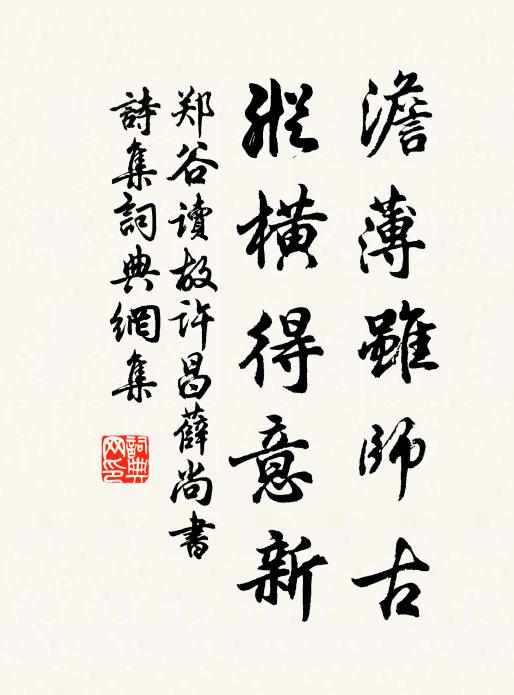 澹薄雖師古
縱橫得意新
郑谷讀故许昌薛尚書
詩集詞典網集
詞典网印